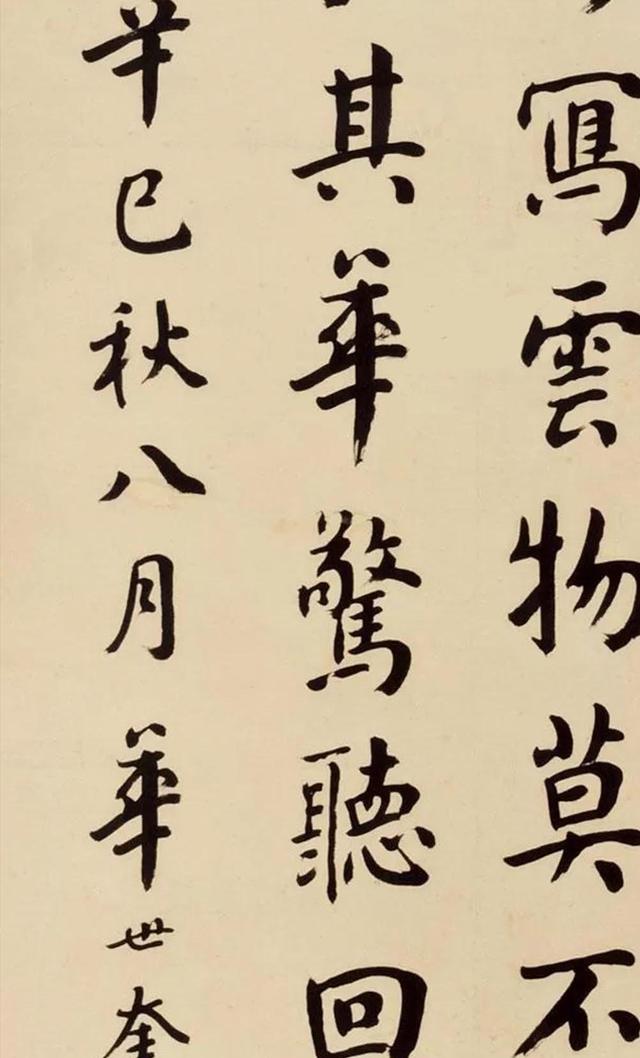 寫雲物莫不
其華驚聽回
辛巳秋八月華世奎